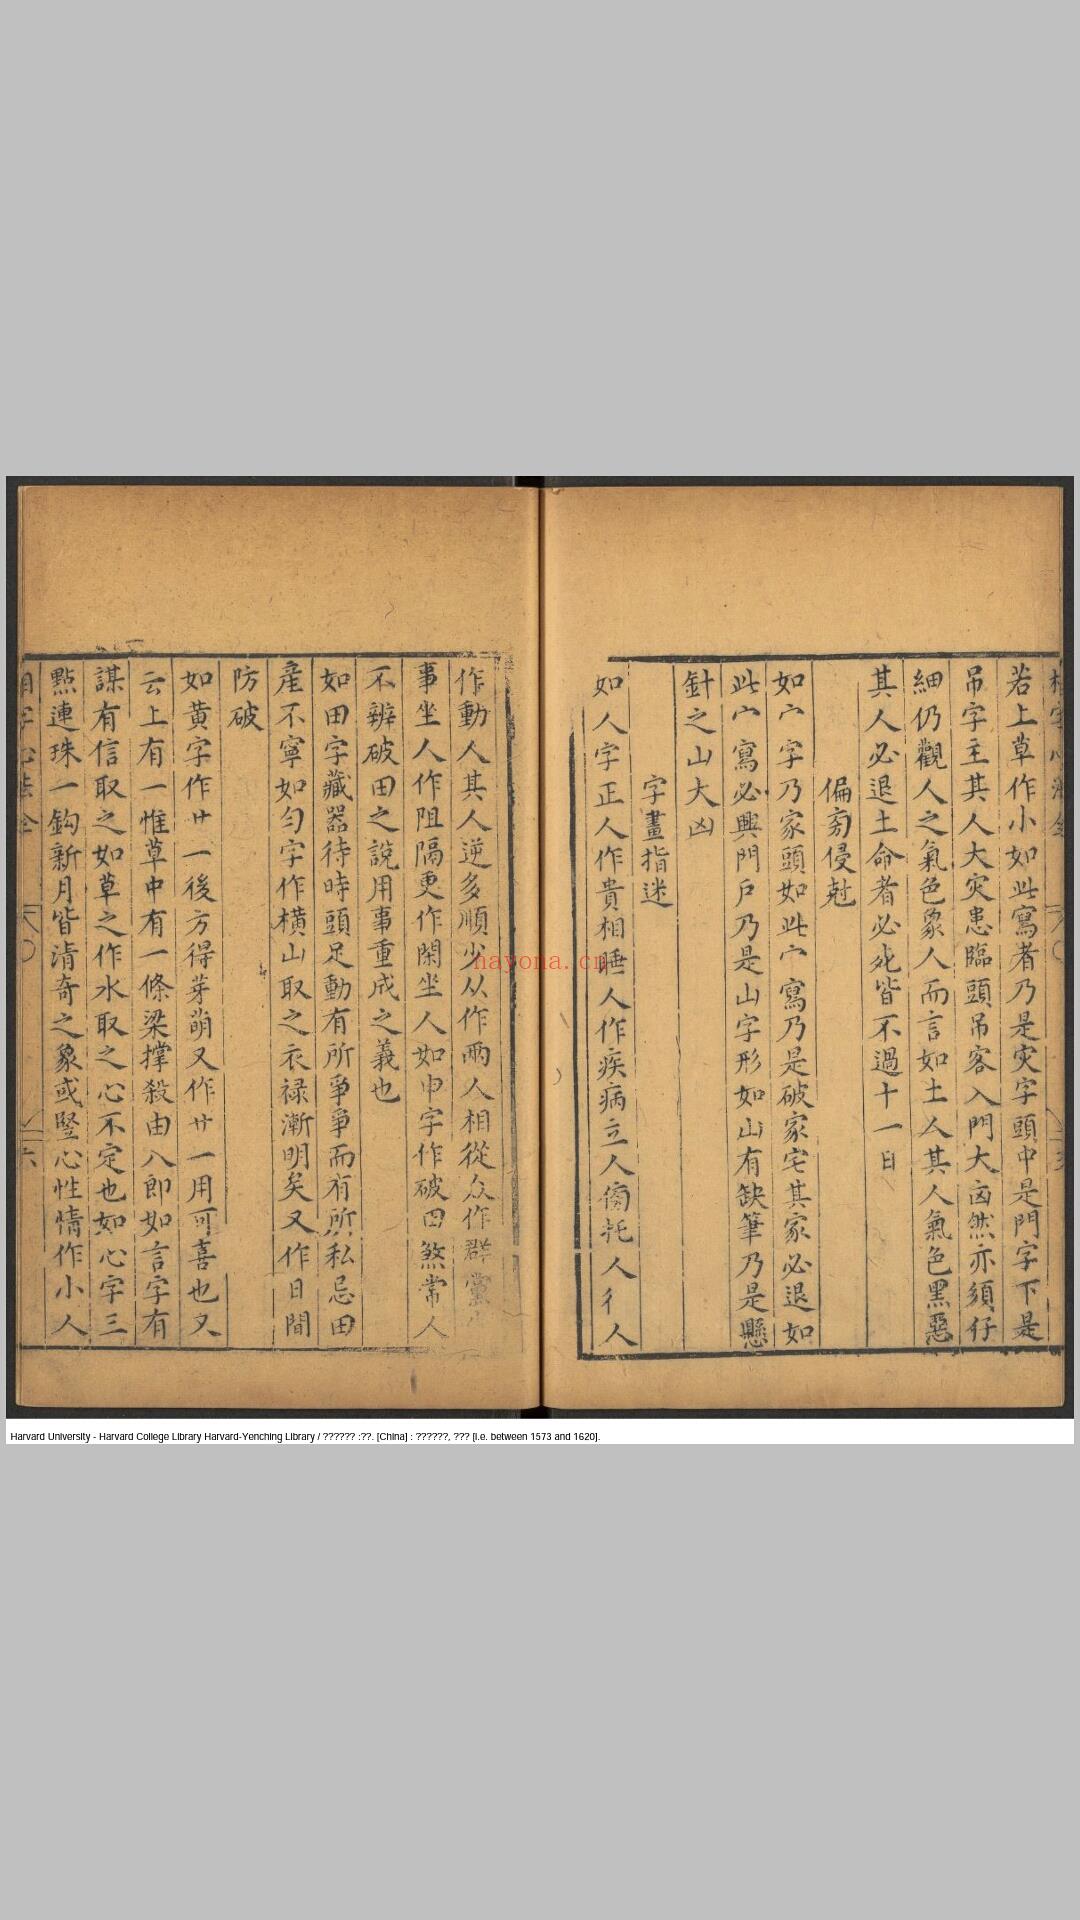 若上草作小如此寫者乃是灾字頭中是門字下是
吊字主其人大灾患臨頭吊客入門大凶然亦須仔
細仍觀人之氣色象人而言如土人其人氣色黑惡
其人必退土命者必死皆不過十一日
偏旁侵尅
如宀字乃家頭如此宀寫乃是破家宅其家必退如
此宀寫必興門戶乃是山字形如山有缺筆乃是懸
針之山大凶
字畫指迷
如人字正人作貴相睡人作疾病立人傍托人人彳人
作動人其人逆多順少从作兩人相從众作群黨
事坐人作阻隔更作閑坐人如申字作破田煞常人
不辨破田之說用事重成之義也
如田字藏器待時頭足動有所爭爭而有所私忌田
産不寧如勻字作橫山取之衣禄漸明矣又作日間
防破
如黄字作廿一後方得芽萌又作廿一用可喜也又
云上有一惟草中有一條梁撑殺由八即如言字有
謀有信取之如草之作水取之心不定也如心字三
點連珠一鈎新月皆清奇之象或竪心性情作小人
hayona.cn
Harvard University - Harvard College Library Harvard-Yenching Library / ?????? :??. [China] : ??????, ??? [i.e. between 1573 and 1620].